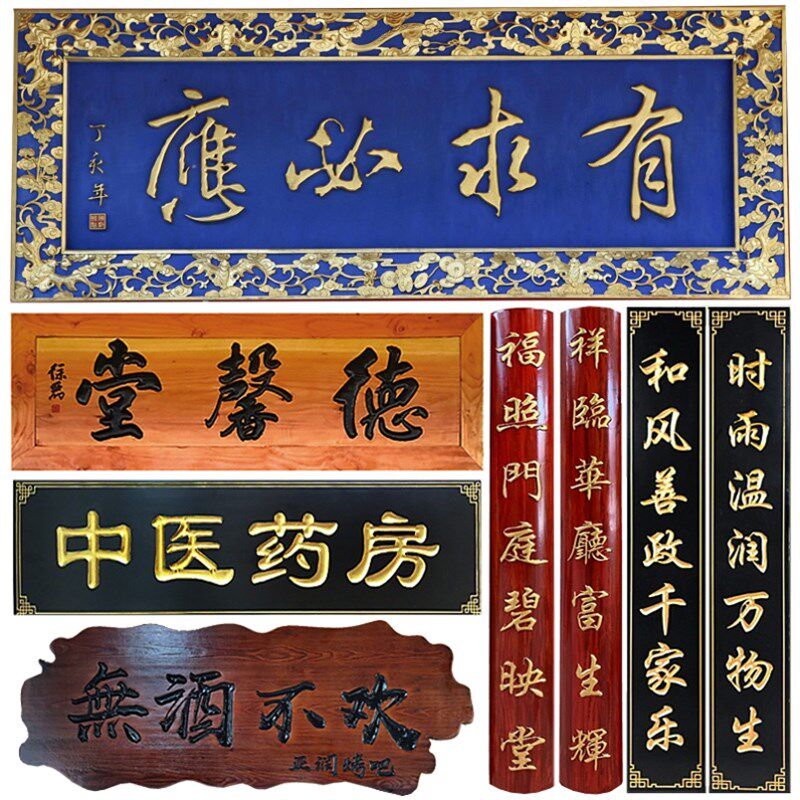 有求必應
丁亥年
德馨堂
中医药房
無酒不欢
烤吧
祥臨華廳富生輝
福照門庭碧映堂
时雨温润万物生
和风善政千家乐